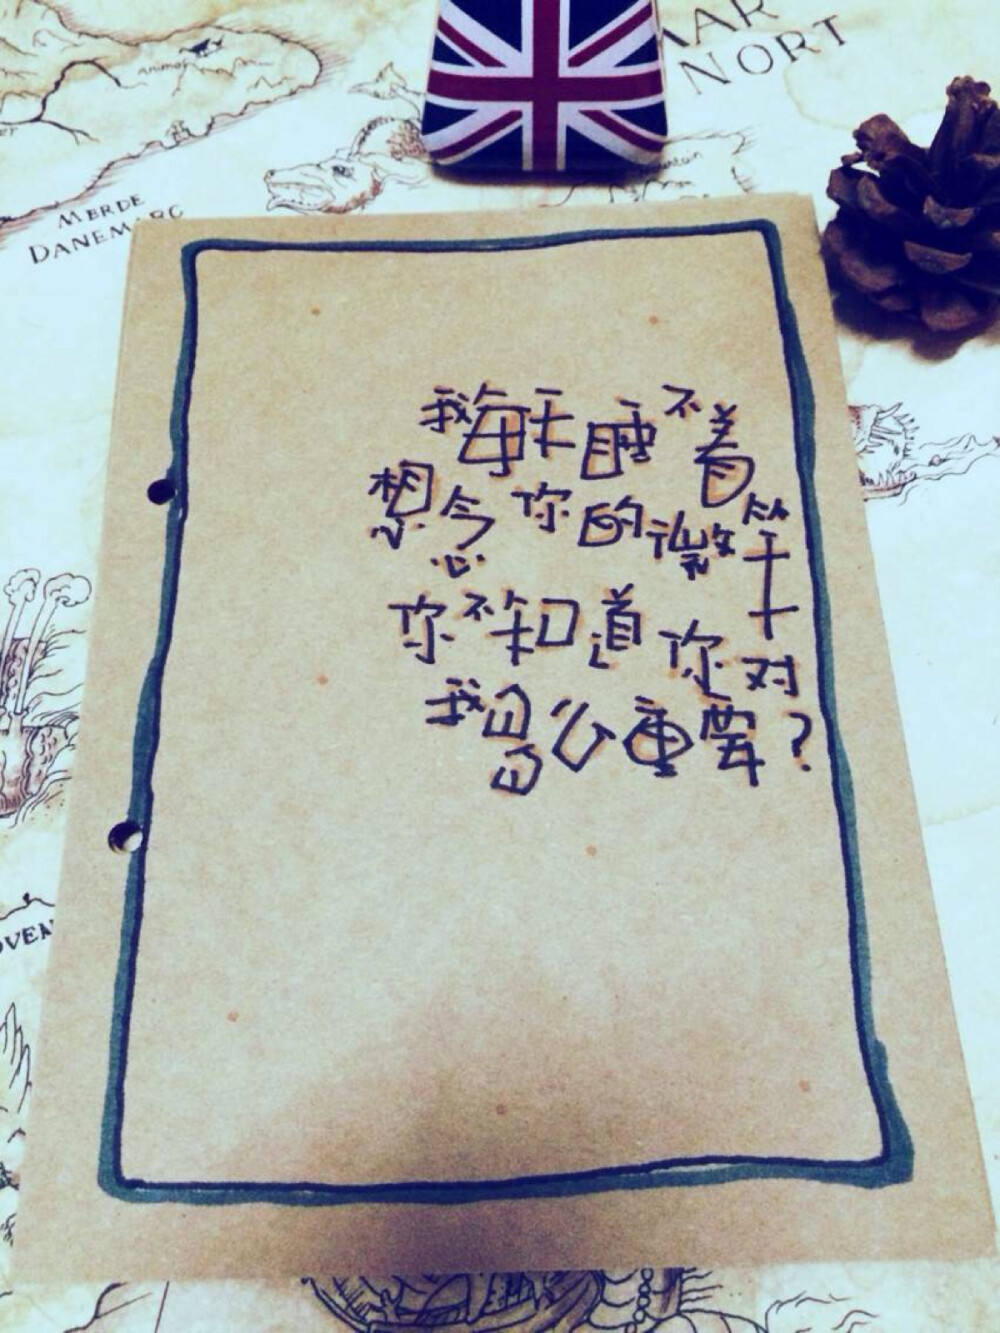 NORT
MERDE
DANEMARC
我每天睡不着
想念你的微笑
你不知道你对
我多么重要？